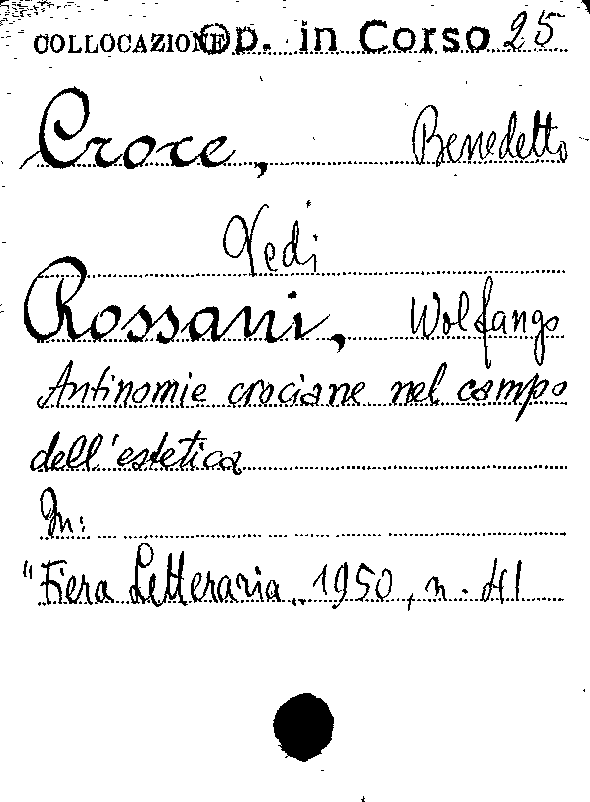 COLLOCAZIONE Op. in Corso 25
Croce, Benedetto
Vedi
Rossani, Wolfango
Antinomie crociane nel campo
dell'estetica
In:
"Fiera Letteraria.. 1950, n. 41